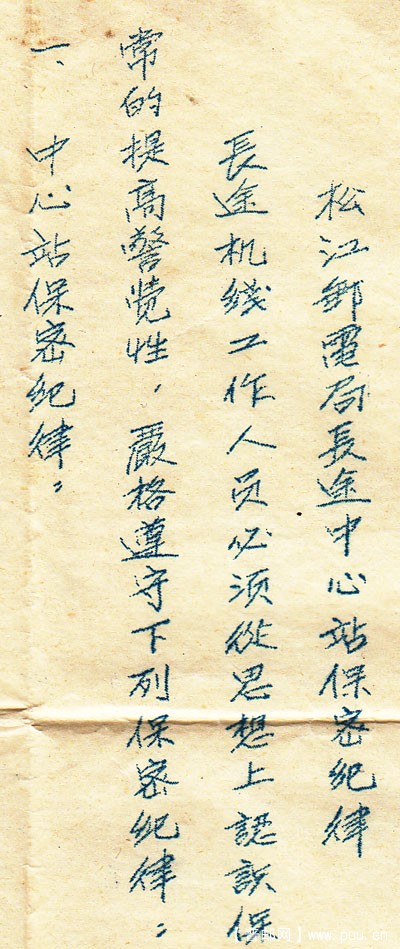 松江邮電局長途中心站保密纪律
長途机线工作人员必须從思想上認識保
常的提高警觉性，嚴格遵守下列保密纪律：
一、中心站保密纪律：
www.pou.cn